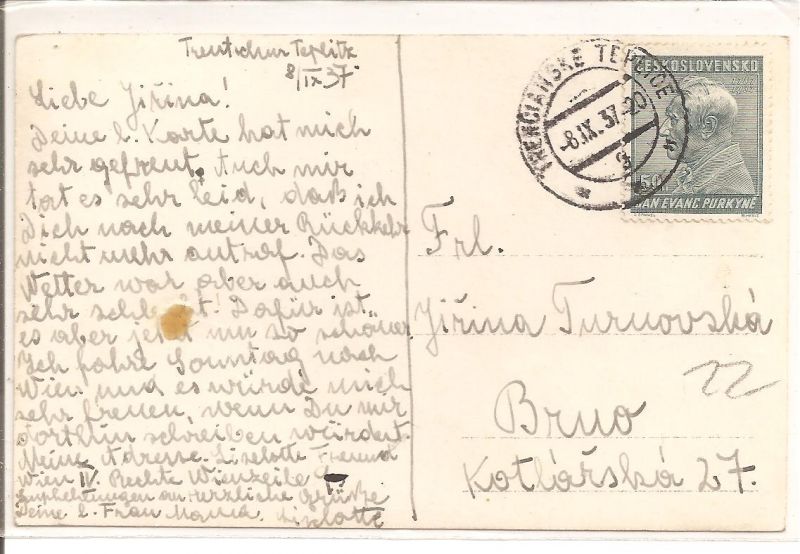 Trentschin Teplitz
8/IX 37
Liebe Jiřina!
Deine l. Karte hat mich
sehr gefreut. Auch mir
tat es sehr leid, daß ich
Dich nach meiner Rückkehr
nicht mehr antraf. Das
Wetter war aber auch
sehr schlecht! Dafür ist
es aber jetzt um so schöner
Ich fahre Sonntag nach
Wien und es würde mich
sehr freuen, wenn Du mir
dorthin schreiben würdest.
Meine Adresse. Liselotte Freund
Wien IV. Rechte Wienzeile
Empfehlungen an Herzliche Grüsse
Deine l. Frau Mama. Liselotte
TRENČIANSKE TEPLICE
-8.IX.37-20
ČESKOSLOVENSKO
50
JAN EVANG. PURKYNĚ
Frl.
Jiřina Turnovská
22
Brno
Kotlářská 27.